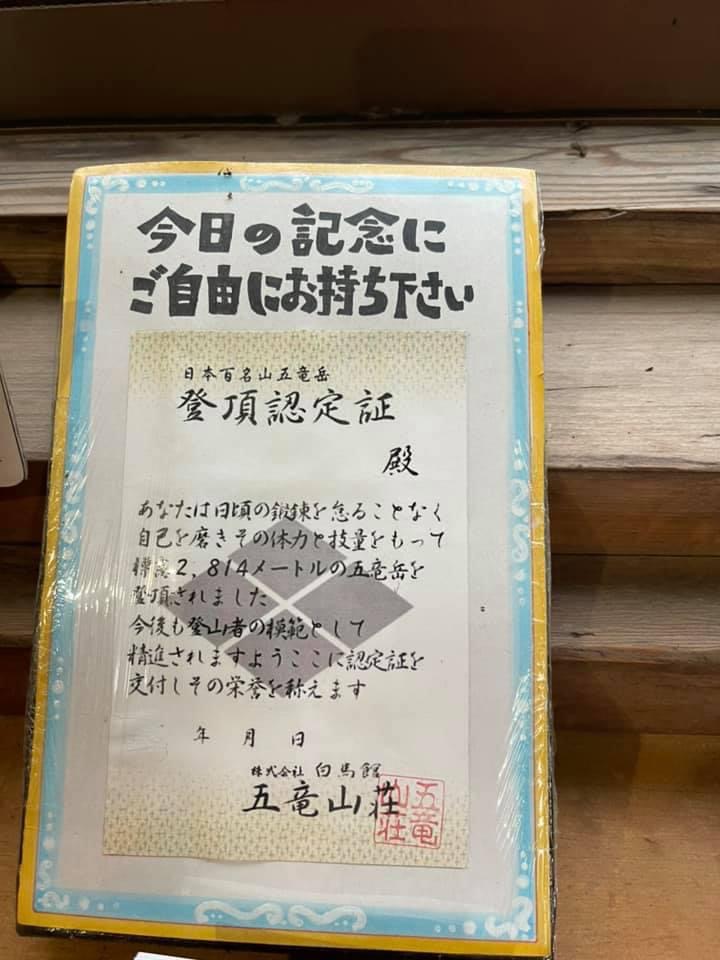 今日の記念に
ご自由にお持ち下さい
日本百名山五竜岳
登頂認定証
殿
あなたは日頃の鍛錬を怠ることなく
自己を磨きその体力と技量をもって
標高2,814メートルの五竜岳を
登頂されました
今後も登山者の模範として
精進されますようここに認定証を
交付しその栄誉を称えます
年 月 日
株式会社 白馬館
五竜山荘
五竜
山荘